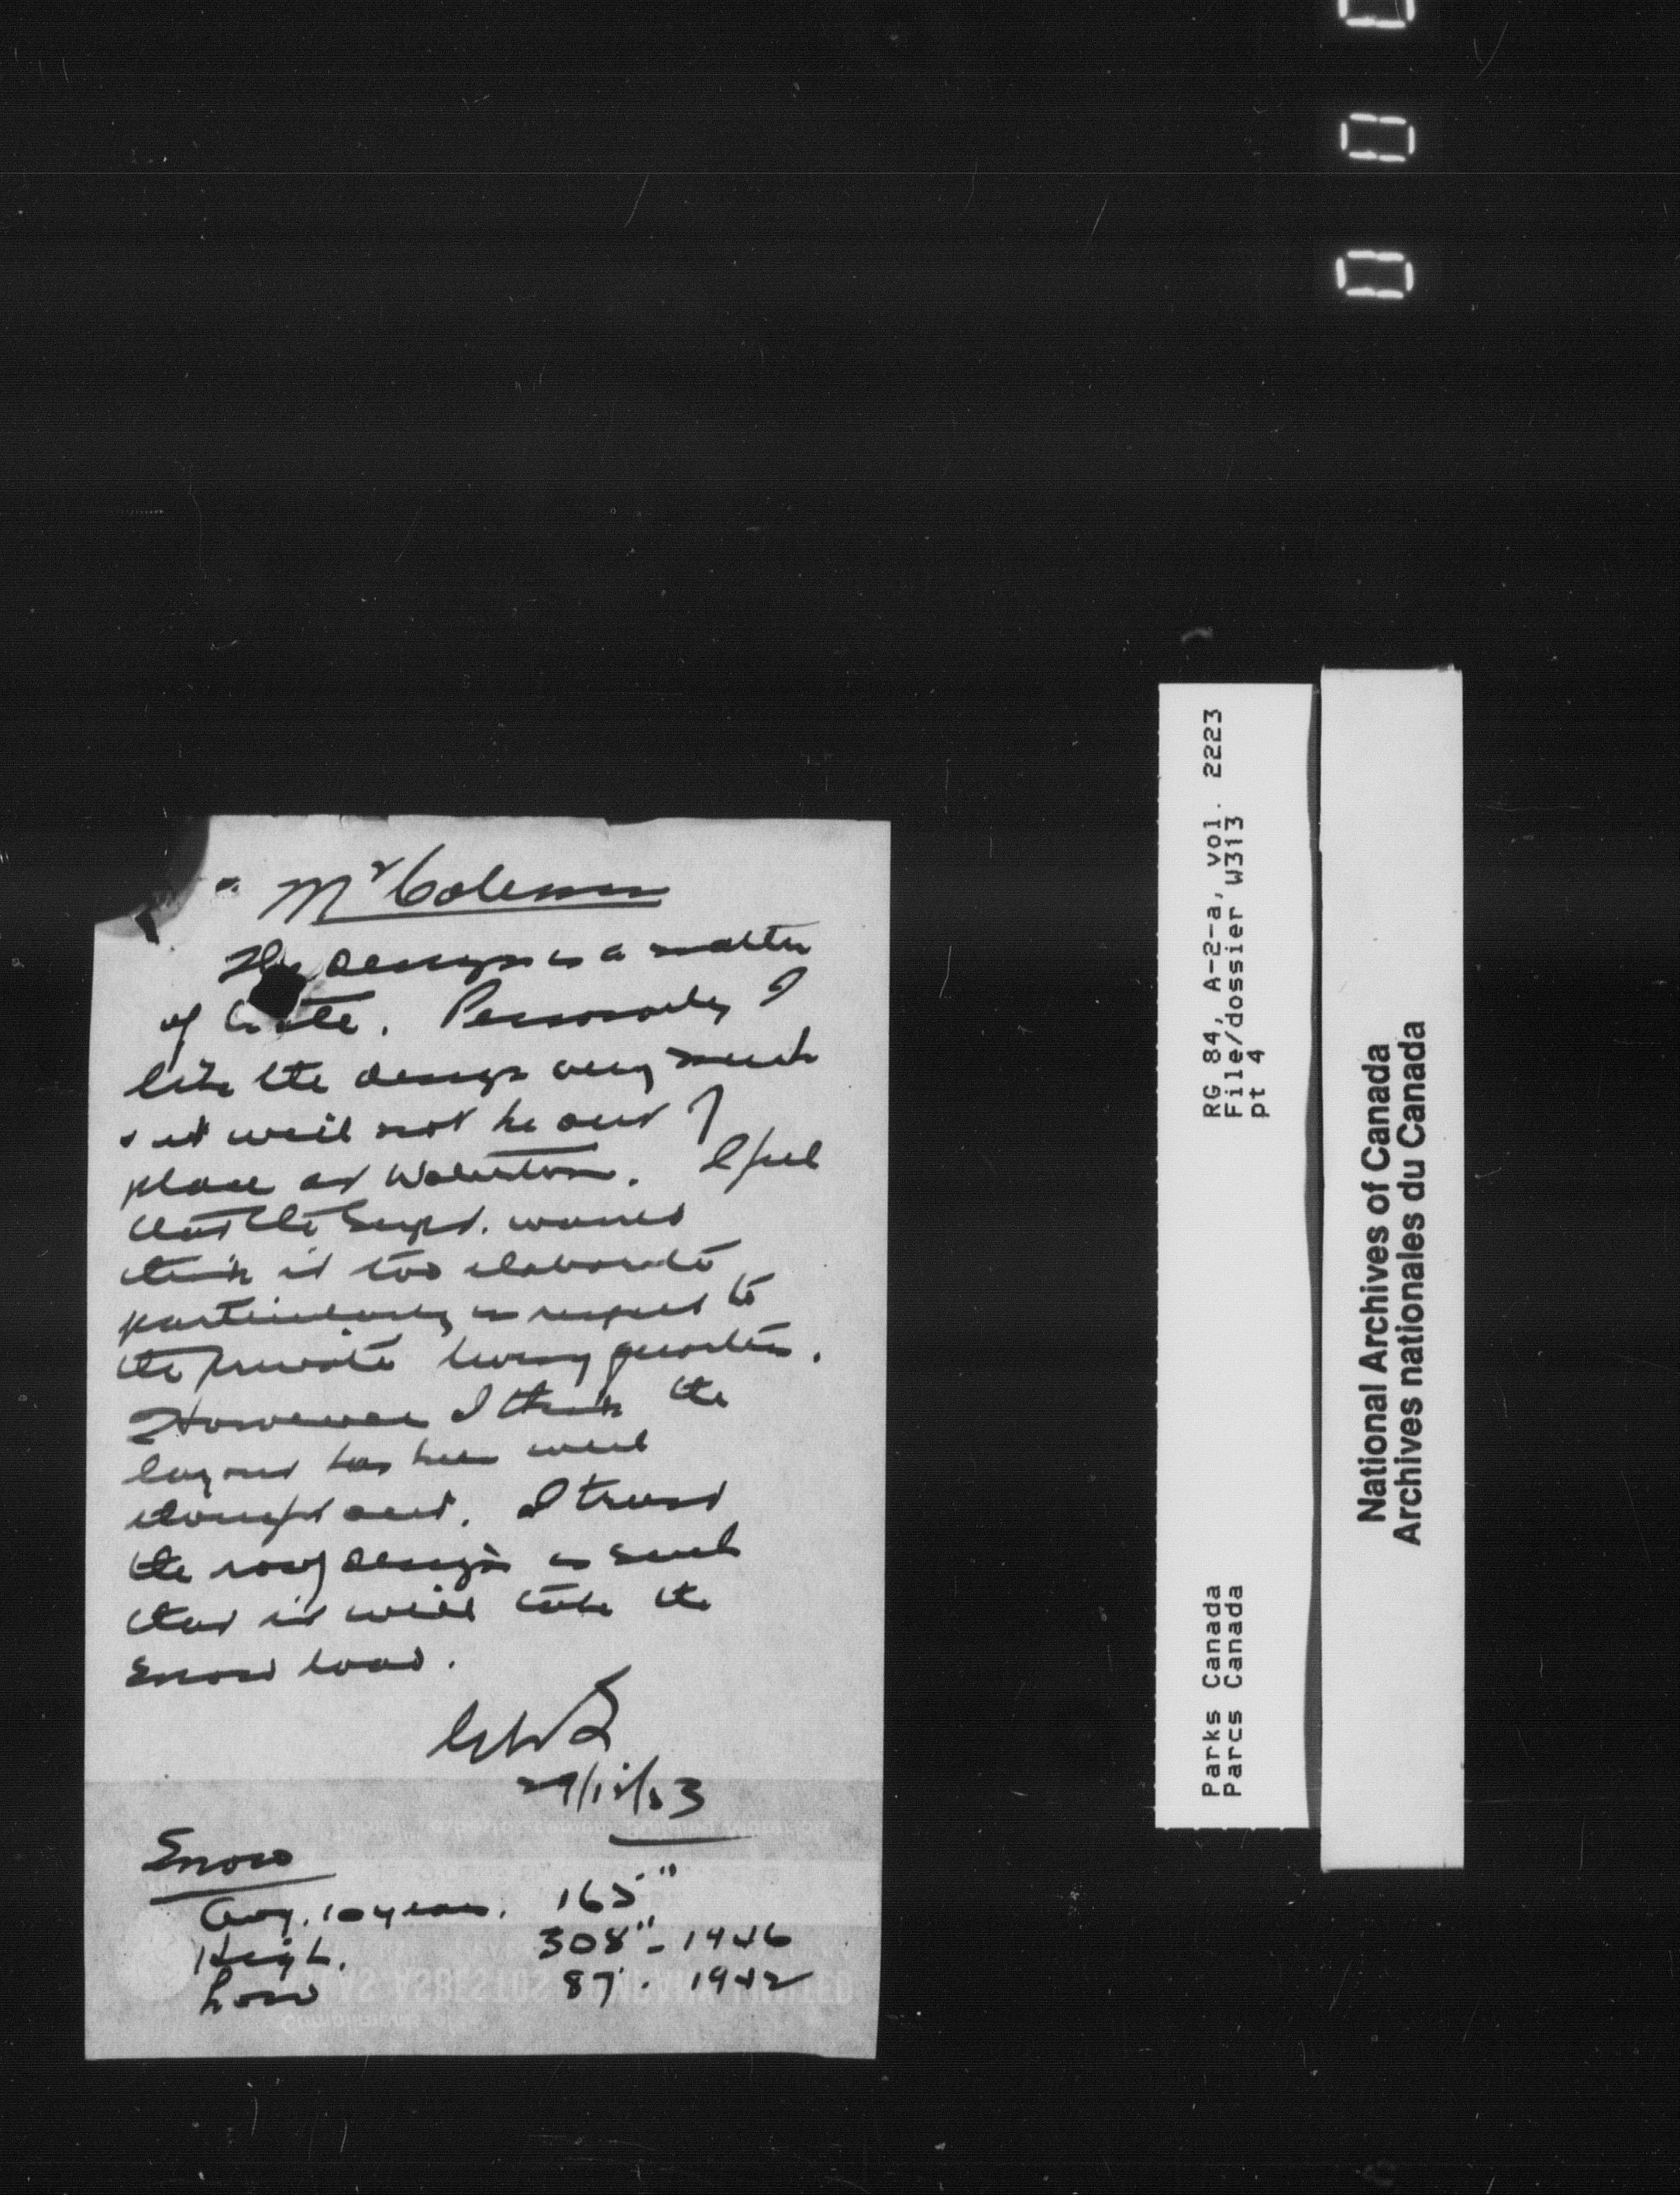 Mr Coleman
The design is a matter
of taste. Personally I
like the design very much
& it will not be out of
place at Waterton. I feel
that the Supt. would
think it too elaborate
particularly in respect to
the private living quarters.
However I think the
layout has been well
thought out. I trust
the roof design is such
that it will take the
snow load.
29/12/53
Snow
Avg. 10 years. 165"
High. 308" - 1946
Low 87" - 1942
RG 84, A-2-a, vol. 2223
File/dossier W313
pt 4
Parks Canada
Parcs Canada
National Archives of Canada
Archives nationales du Canada
0
0